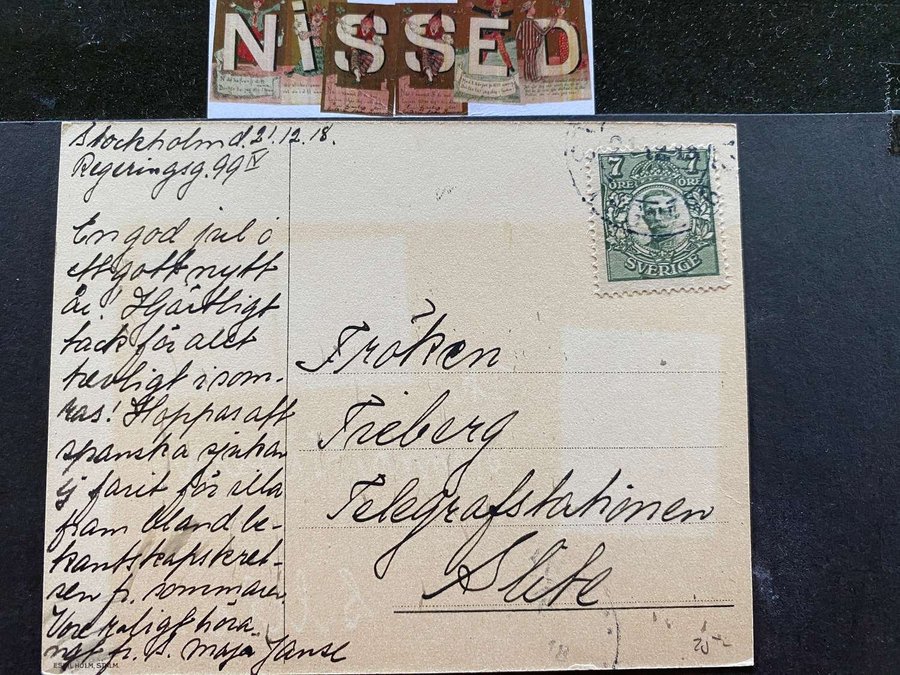 NiSSED
Stockholm d. 21.12.18.
Regeringsg. 99 IV
En god jul o
ett gott nytt
år! Hjärtligt
tack för alet
trevligt i som-
ras! Hoppas att
spanska sjukan
ej farit för illa
fram bland be-
kantskapskret-
sen fr. sommaren.
Vore roligt höra
ngt fr. S. Maja Janse
7 7
ÖRE ÖRE
SVERIGE
Fröken
Frieberg
Telegrafstationen
Slite